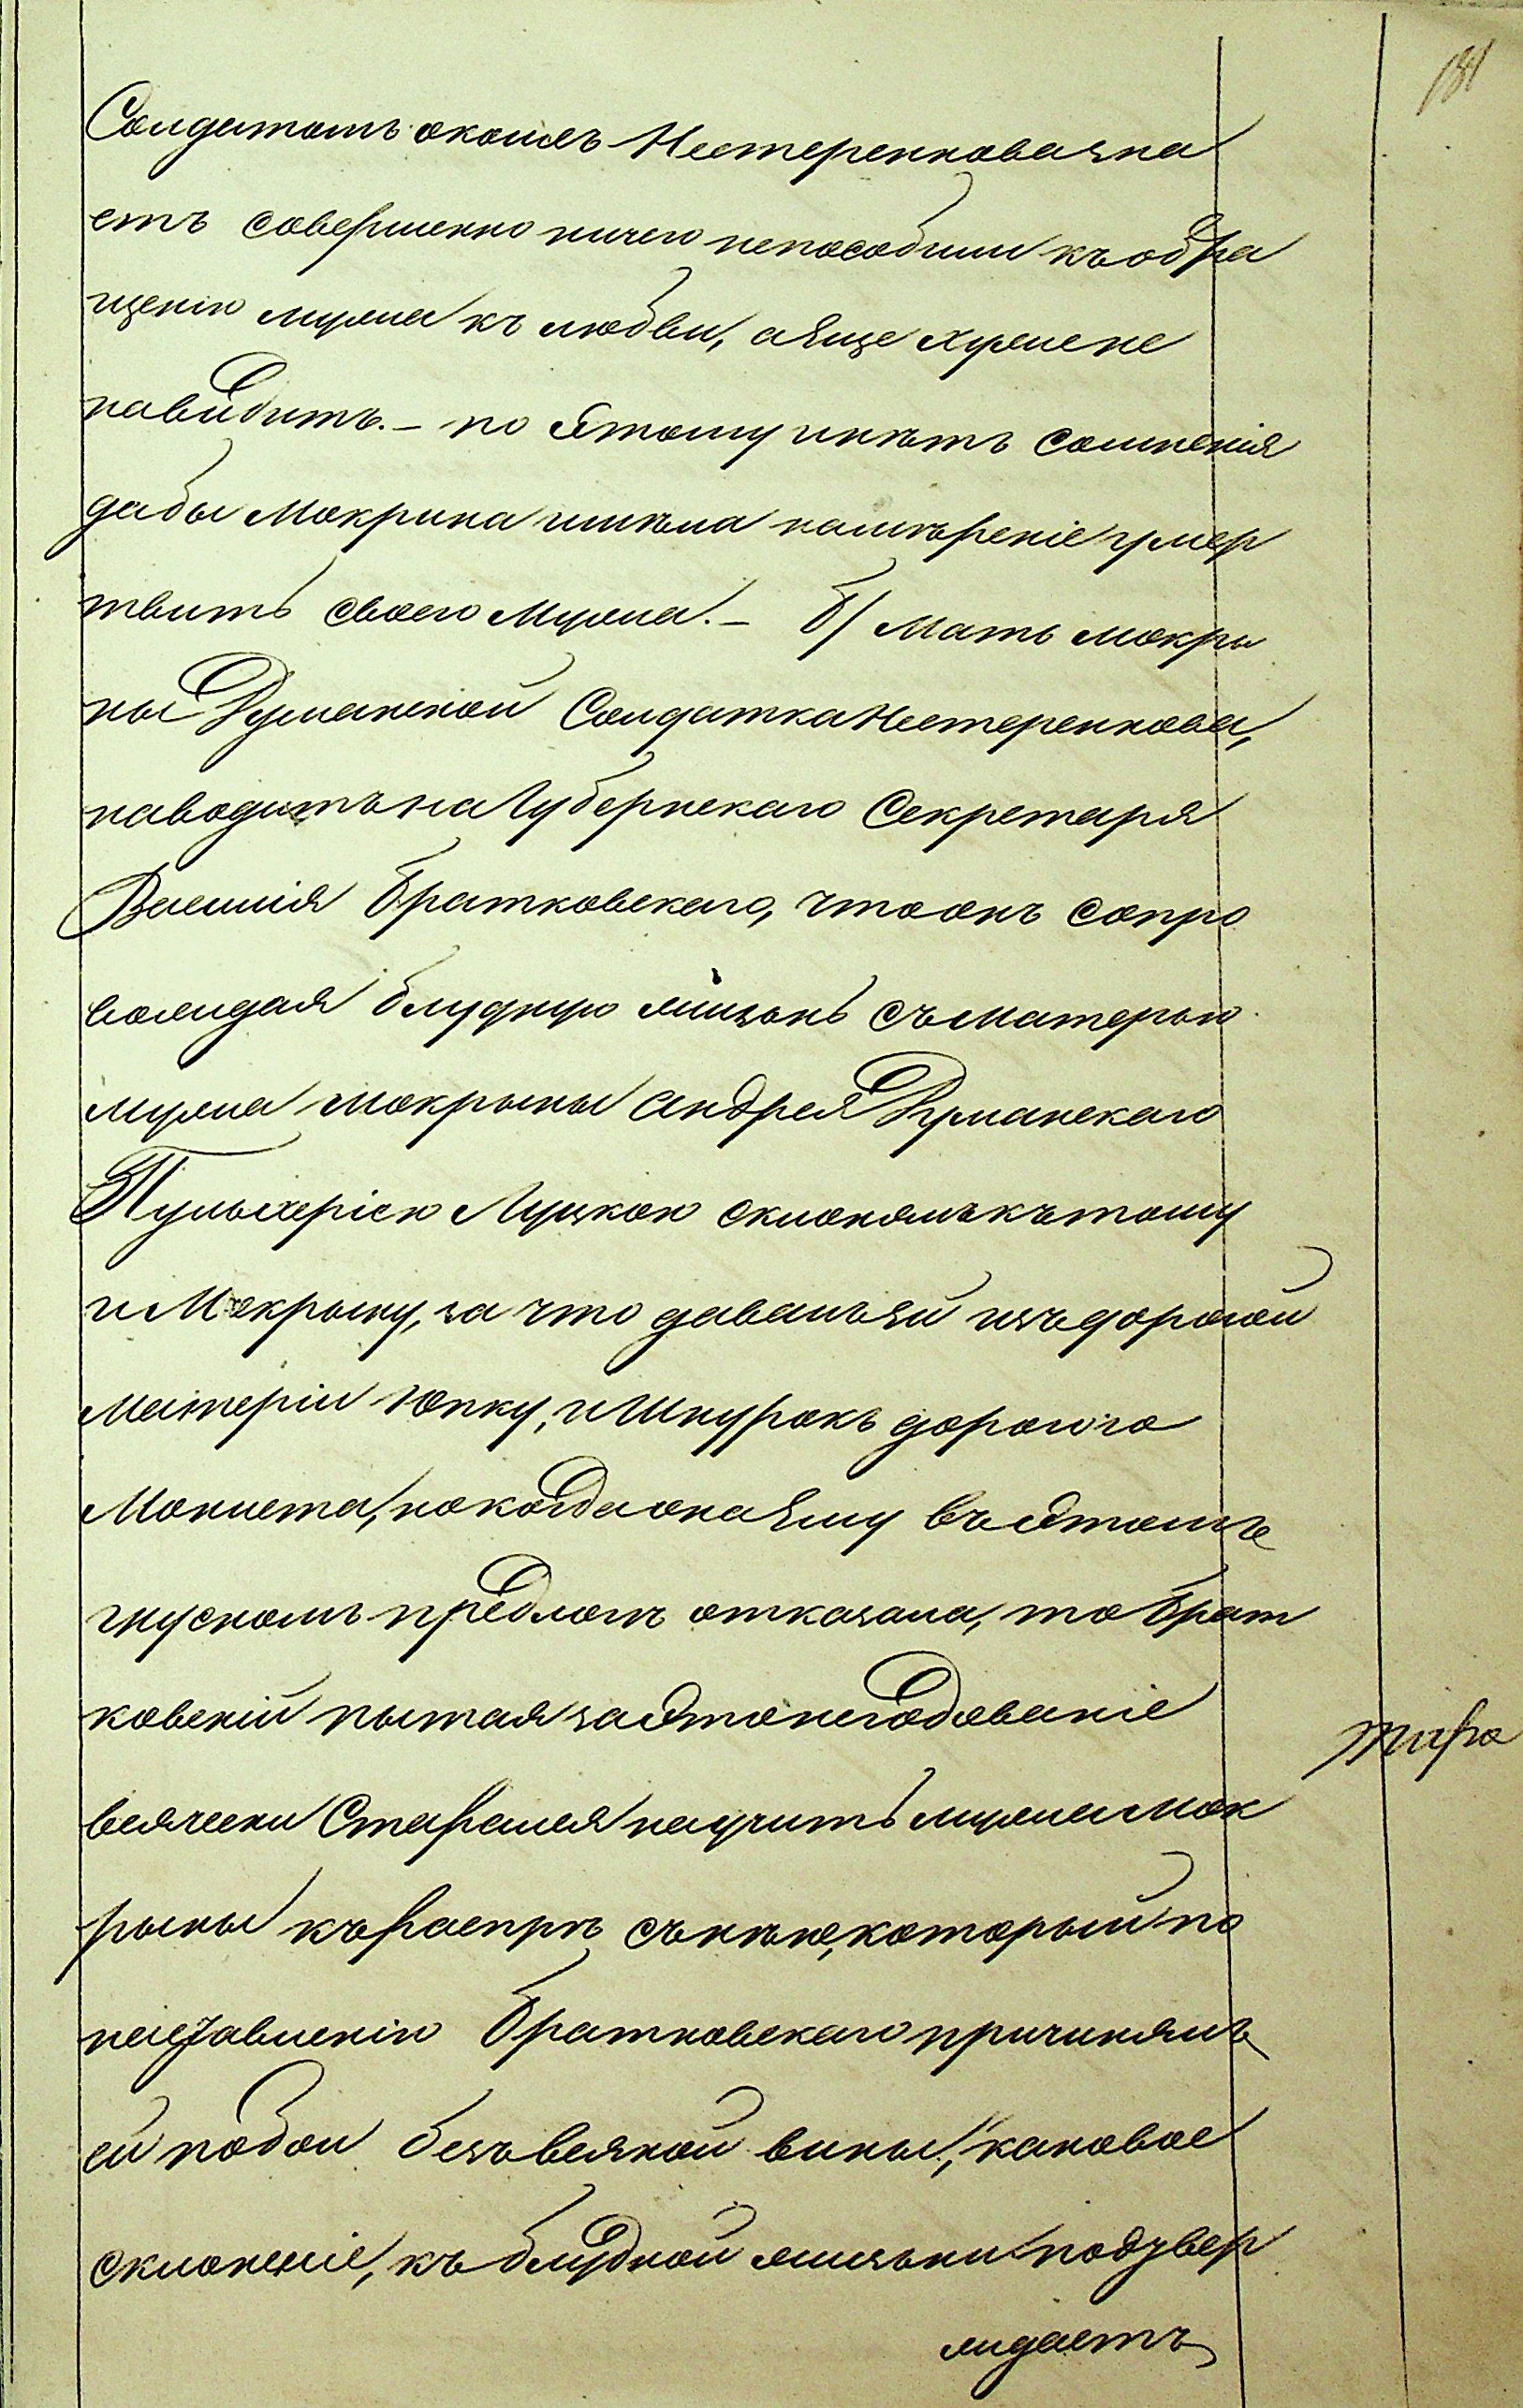 181
Солдатомъ окомъ Нестеренкова зна
етъ совершенно ничего непособили къ обра
щенію мужа къ любви, а Еще хуже не
навидитъ. – по Этому инѣтъ сомнѣнія
дабы Мокрина имѣла намѣреніе умер
твить своего мужа. – б/ Мать мокры
ны Руманской Солдатка Нестеренкова,
наводитъ на Губернскаго Секретаря
Василія Братковскаго, что онъ сопро
вождая блудную жизнь съ матерью
мужа мокрыны Андрея Руманскаго
Пульхеріею Луцкою склонялъ къ тому
и Мокрыну, за что давалъ Ей изъ дорогой
Матеріи Юпку, и Шнурокъ дорогого
Мониста, но когда она Ему въ Этомъ
гнусномъ предлогѣ отказала, то Брат
ковскій пытая за Это негодованіе
всячески Старался научить мужа мок
рыны къ распрѣ съ нѣю, который по
наставленію Братковскаго причинялъ
ей побои безъ всякой вины, каковое
склоненіе, къ блудной жизни подтвер
ждаетъ